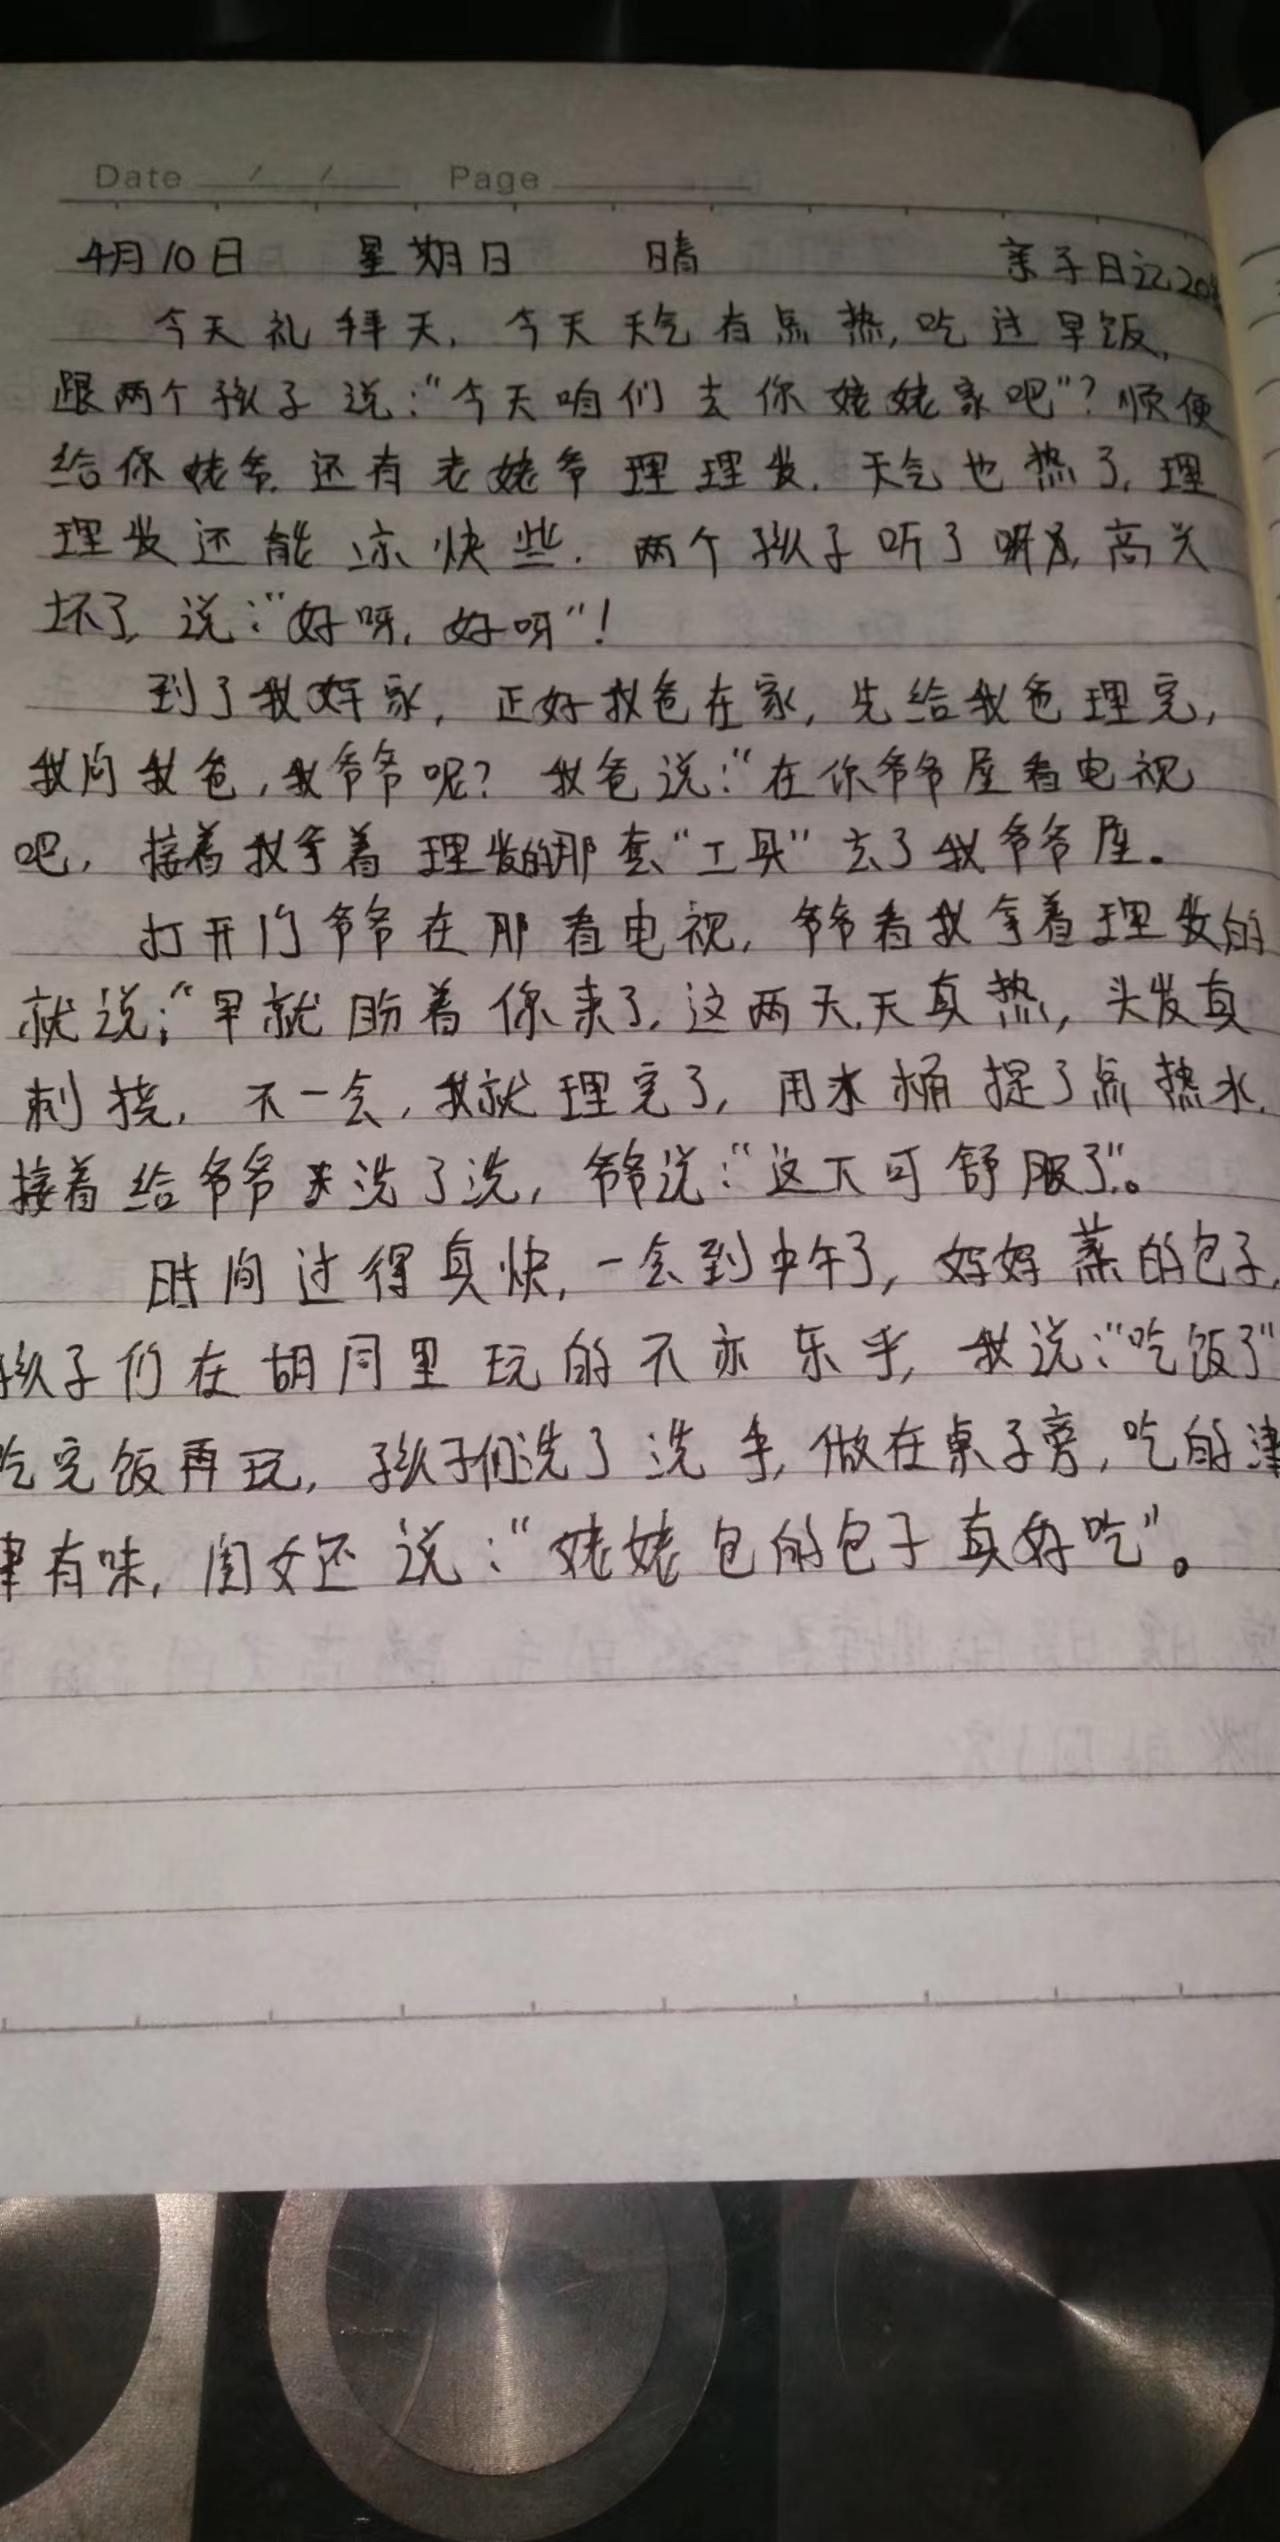 Date / / Page
4月10日 星期日 晴 亲子日记20
今天礼拜天，今天天气有点热，吃过早饭，
跟两个孩子说：“今天咱们去你姥姥家吧”？顺便
给你姥爷，还有老姥爷理理发，天气也热了，理
理发还能凉快些，两个孩子听了 高兴
坏了，说：“好呀，好呀”！
到了我娘家，正好我爸在家，先给我爸理完，
我问我爸，我爷爷呢？我爸说：“在你爷爷屋看电视
吧，接着我拿着理发的那套“工具”去了我爷爷屋。
打开门爷爷在那看电视，爷爷看我拿着理发的
就说：“早就盼着你来了，这两天，天真热，头发真
刺挠，不一会，我就理完了，用水桶提了点热水，
接着给爷爷 洗了洗，爷爷说：“这下可舒服了”。
时间过得真快，一会到中午了， 蒸的包子，
孩子们在胡同里玩的不亦乐乎，我说：“吃饭了”
吃完饭再玩，孩子们洗了洗手，做在桌子旁，吃的津
津有味，闺女还说：“姥姥包的包子真好吃”。